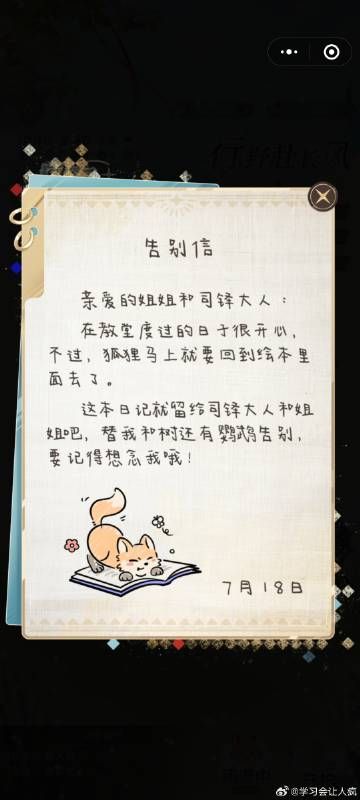 告别信
亲爱的姐姐和司铎大人：
在教堂度过的日子很开心，
不过，狐狸马上就要回到绘本里
面去了。
这本日记就留给司铎大人和姐
姐吧，替我和树还有鹦鹉告别，
要记得想念我哦！
7月18日
@学习会让人疯